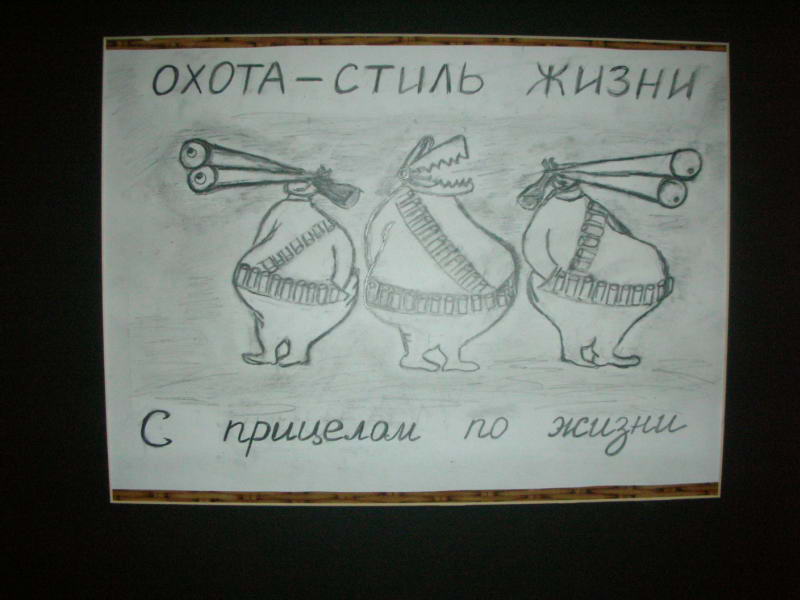 ОХОТА – СТИЛЬ ЖИЗНИ
С прицелом по жизни